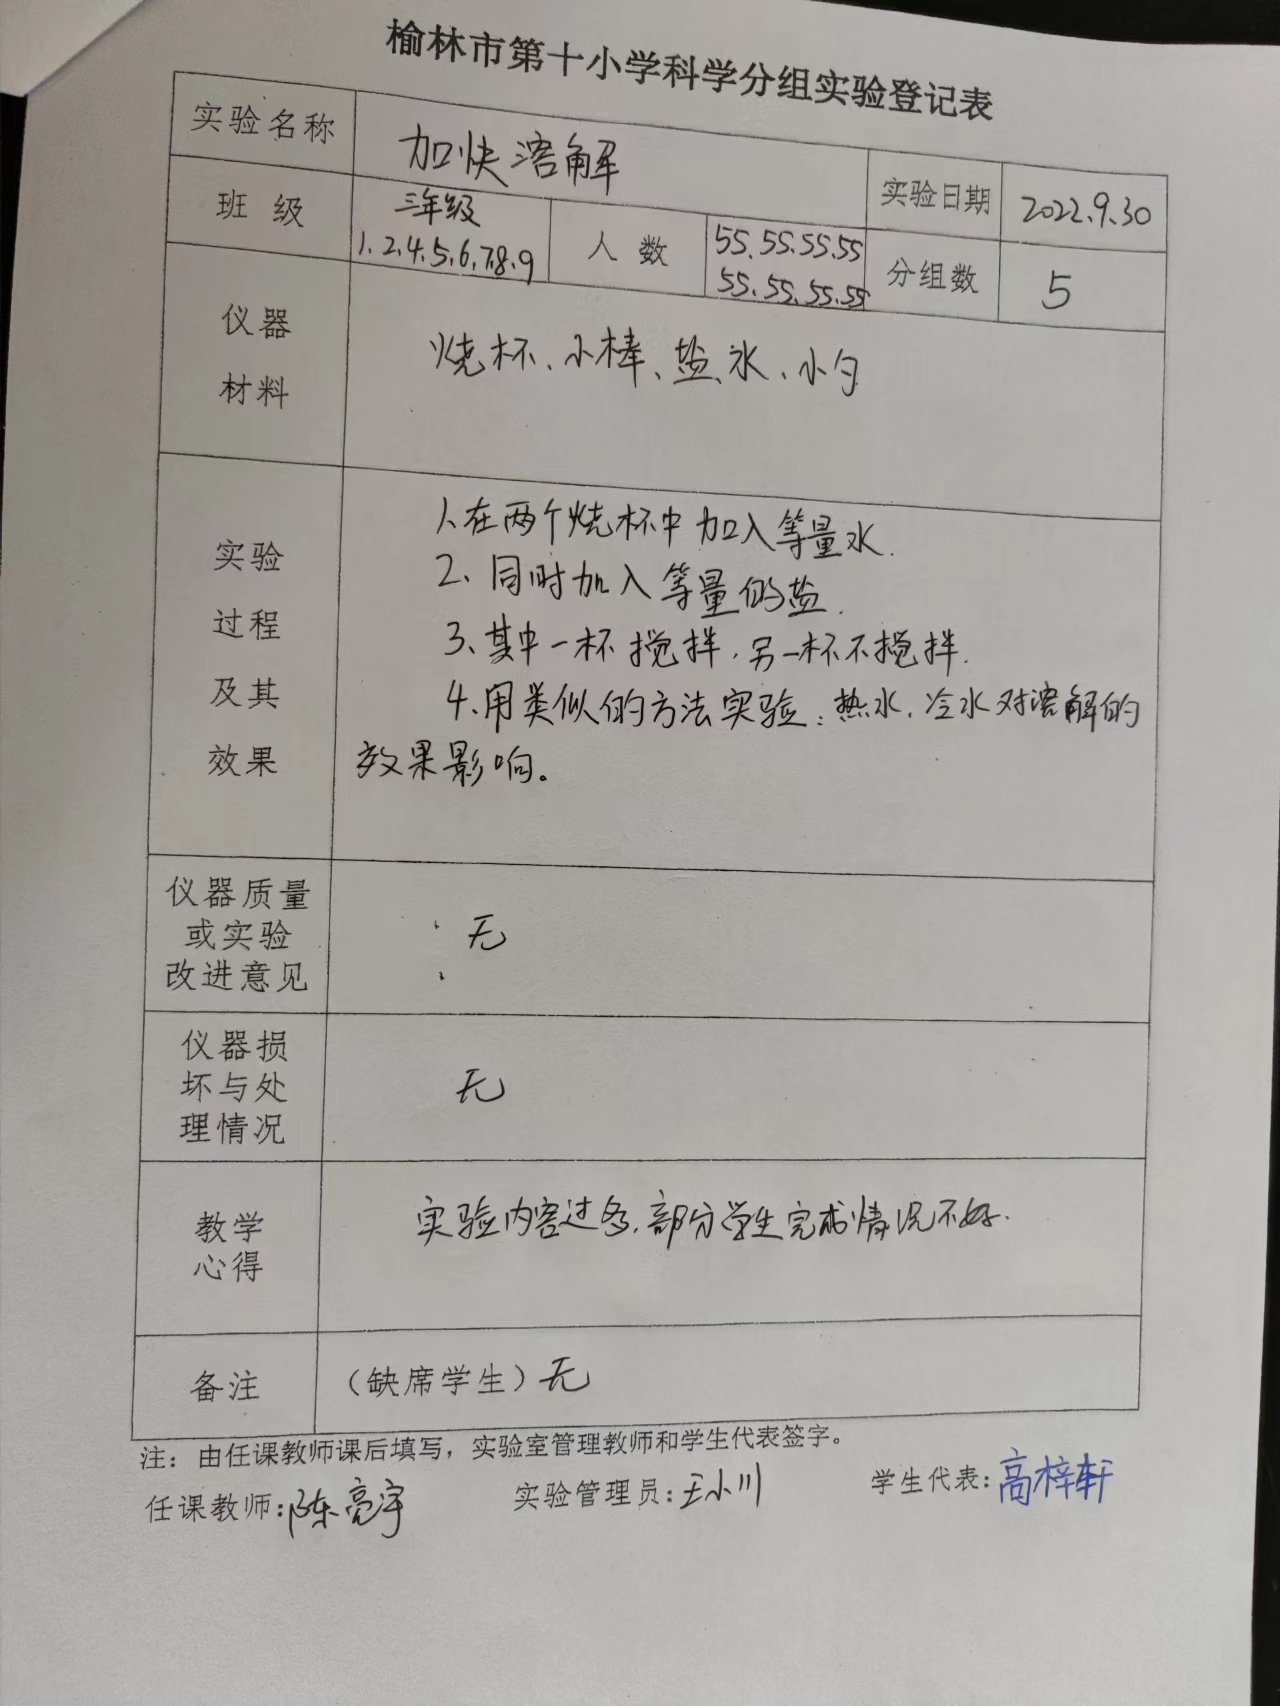 榆林市第十小学科学分组实验登记表
实验名称
加快溶解
实验日期
2022.9.30
班 级
三年级
1.2.4.5.6.7.8.9
人 数
55.55.55.55
55.55.55.55
分组数
5
仪器
材料
烧杯、小棒、盐、水、小勺
实验
过程
及其
效果
1.在两个烧杯中加入等量水.
2、同时加入等量的盐.
3、其中一杯搅拌,另一杯不搅拌.
4.用类似的方法实验:热水,冷水对溶解的
效果影响。
仪器质量
或实验
改进意见
无
仪器损
坏与处
理情况
无
教学
心得
实验内容过多,部分学生完成情况不好.
备注
(缺席学生)无
注:由任课教师课后填写,实验室管理教师和学生代表签字。
任课教师:陈亮宇
实验管理员:王小川
学生代表:高梓轩